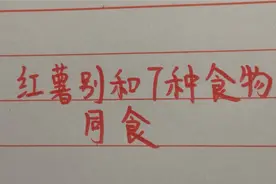 红薯别和7种食物
同食